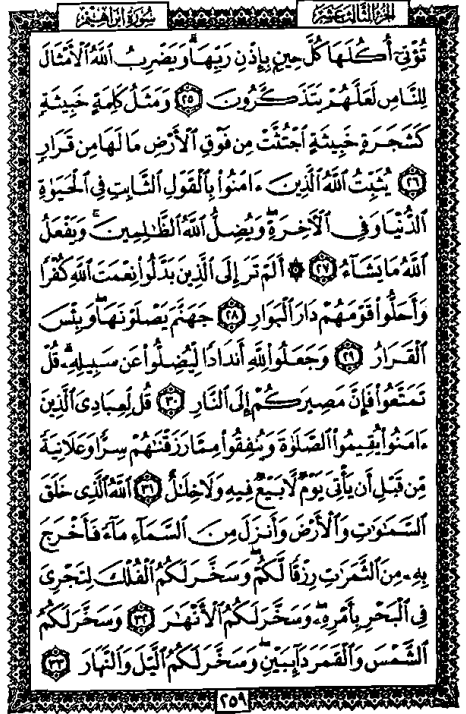 الجزء الثالث عشر
سورة إبراهيم
تُؤْتِىٓ أُكُلَهَا كُلَّ حِينٍۭ بِإِذْنِ رَبِّهَا ۗ وَيَضْرِبُ ٱللَّهُ ٱلْأَمْثَالَ
لِلنَّاسِ لَعَلَّهُمْ يَتَذَكَّرُونَ ٢٥ وَمَثَلُ كَلِمَةٍ خَبِيثَةٍ
كَشَجَرَةٍ خَبِيثَةٍ ٱجْتُثَّتْ مِن فَوْقِ ٱلْأَرْضِ مَا لَهَا مِن قَرَارٍ
٢٦ يُثَبِّتُ ٱللَّهُ ٱلَّذِينَ ءَامَنُوا۟ بِٱلْقَوْلِ ٱلثَّابِتِ فِى ٱلْحَيَوٰةِ
ٱلدُّنْيَا وَفِى ٱلْأَخِرَةِ ۖ وَيُضِلُّ ٱللَّهُ ٱلظَّٰلِمِينَ ۚ وَيَفْعَلُ
ٱللَّهُ مَا يَشَآءُ ٢٧ ۞ أَلَمْ تَرَ إِلَى ٱلَّذِينَ بَدَّلُوا۟ نِعْمَتَ ٱللَّهِ كُفْرًا
وَأَحَلُّوا۟ قَوْمَهُمْ دَارَ ٱلْبَوَارِ ٢٨ جَهَنَّمَ يَصْلَوْنَهَا ۖ وَبِئْسَ
ٱلْقَرَارُ ٢٩ وَجَعَلُوا۟ لِلَّهِ أَندَادًا لِّيُضِلُّوا۟ عَن سَبِيلِهِۦ ۗ قُلْ
تَمَتَّعُوا۟ فَإِنَّ مَصِيرَكُمْ إِلَى ٱلنَّارِ ٣٠ قُل لِّعِبَادِىَ ٱلَّذِينَ
ءَامَنُوا۟ يُقِيمُوا۟ ٱلصَّلَوٰةَ وَيُنفِقُوا۟ مِمَّا رَزَقْنَٰهُمْ سِرًّا وَعَلَانِيَةً
مِّن قَبْلِ أَن يَأْتِىَ يَوْمٌ لَّا بَيْعٌ فِيهِ وَلَا خِلَٰلٌ ٣١ ٱللَّهُ ٱلَّذِى خَلَقَ
ٱلسَّمَٰوَٰتِ وَٱلْأَرْضَ وَأَنزَلَ مِنَ ٱلسَّمَآءِ مَآءً فَأَخْرَجَ
بِهِۦ مِنَ ٱلثَّمَرَٰتِ رِزْقًا لَّكُمْ ۖ وَسَخَّرَ لَكُمُ ٱلْفُلْكَ لِتَجْرِىَ
فِى ٱلْبَحْرِ بِأَمْرِهِۦ ۖ وَسَخَّرَ لَكُمُ ٱلْأَنْهَٰرَ ٣٢ وَسَخَّرَ لَكُمُ
ٱلشَّمْسَ وَٱلْقَمَرَ دَآئِبَيْنِ ۖ وَسَخَّرَ لَكُمُ ٱلَّيْلَ وَٱلنَّهَارَ ٣٣
٢٥٩